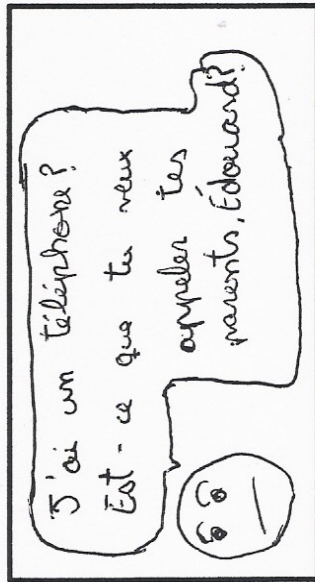 J'ai un téléphone?
Est-ce que tu veux
appeler tes
parents, Édouard?